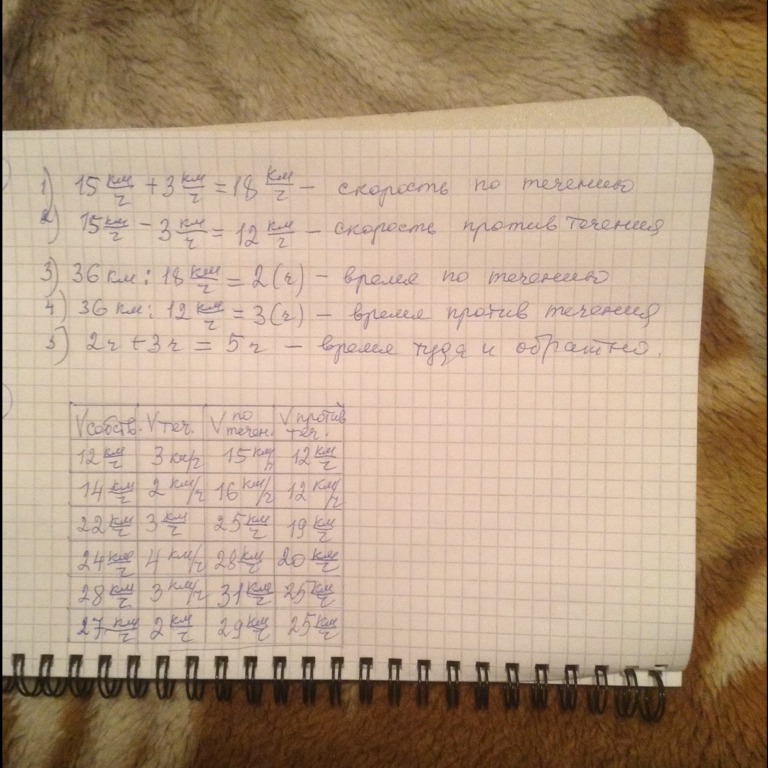 1) 15 км/ч + 3 км/ч = 18 км/ч – скорость по течению
2) 15 км/ч – 3 км/ч = 12 км/ч – скорость против течения
3) 36 км : 18 км/ч = 2 (ч) – время по течению
4) 36 км : 12 км/ч = 3 (ч) – время против течения
5) 2ч + 3ч = 5ч – время туда и обратно.
Vсобств. Vтеч. V по течен. V против теч.
12 км/ч 3 км/ч 15 км/ч 12 км/ч
14 км/ч 2 км/ч 16 км/ч 12 км/ч
22 км/ч 3 км/ч 25 км/ч 19 км/ч
24 км/ч 4 км/ч 28 км/ч 20 км/ч
28 км/ч 3 км/ч 31 км/ч 25 км/ч
27 км/ч 2 км/ч 29 км/ч 25 км/ч